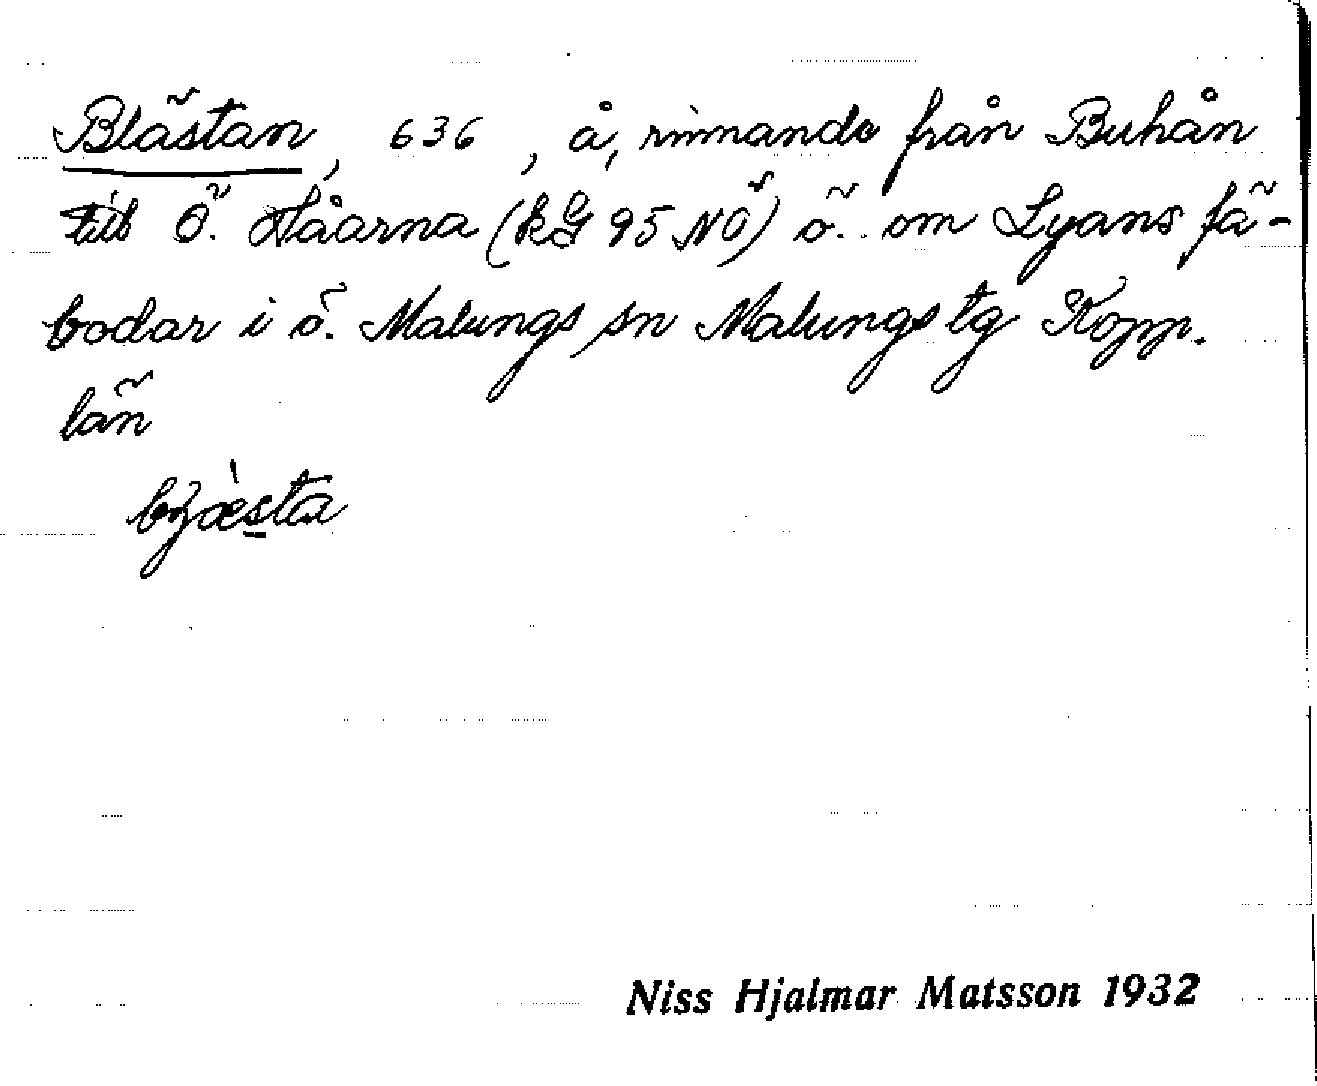 Blästan, 636, å, rinnande från Buhån
till Ö. Håarna (kG 95 NÖ) ö. om Lyans fä-
bodar i ö. Malungs sn Malungs tg Kopp.
län
Niss Hjalmar Matsson 1932